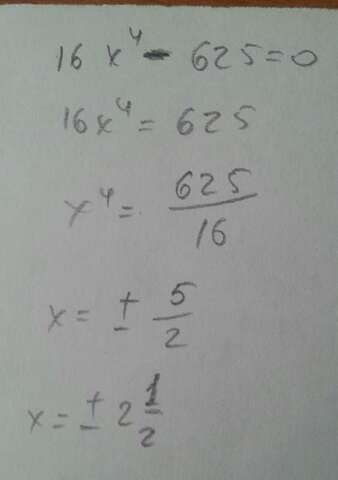 16x⁴ - 625 = 0
16x⁴ = 625
x⁴ = 625/16
x = ± 5/2
x = ± 2 1/2